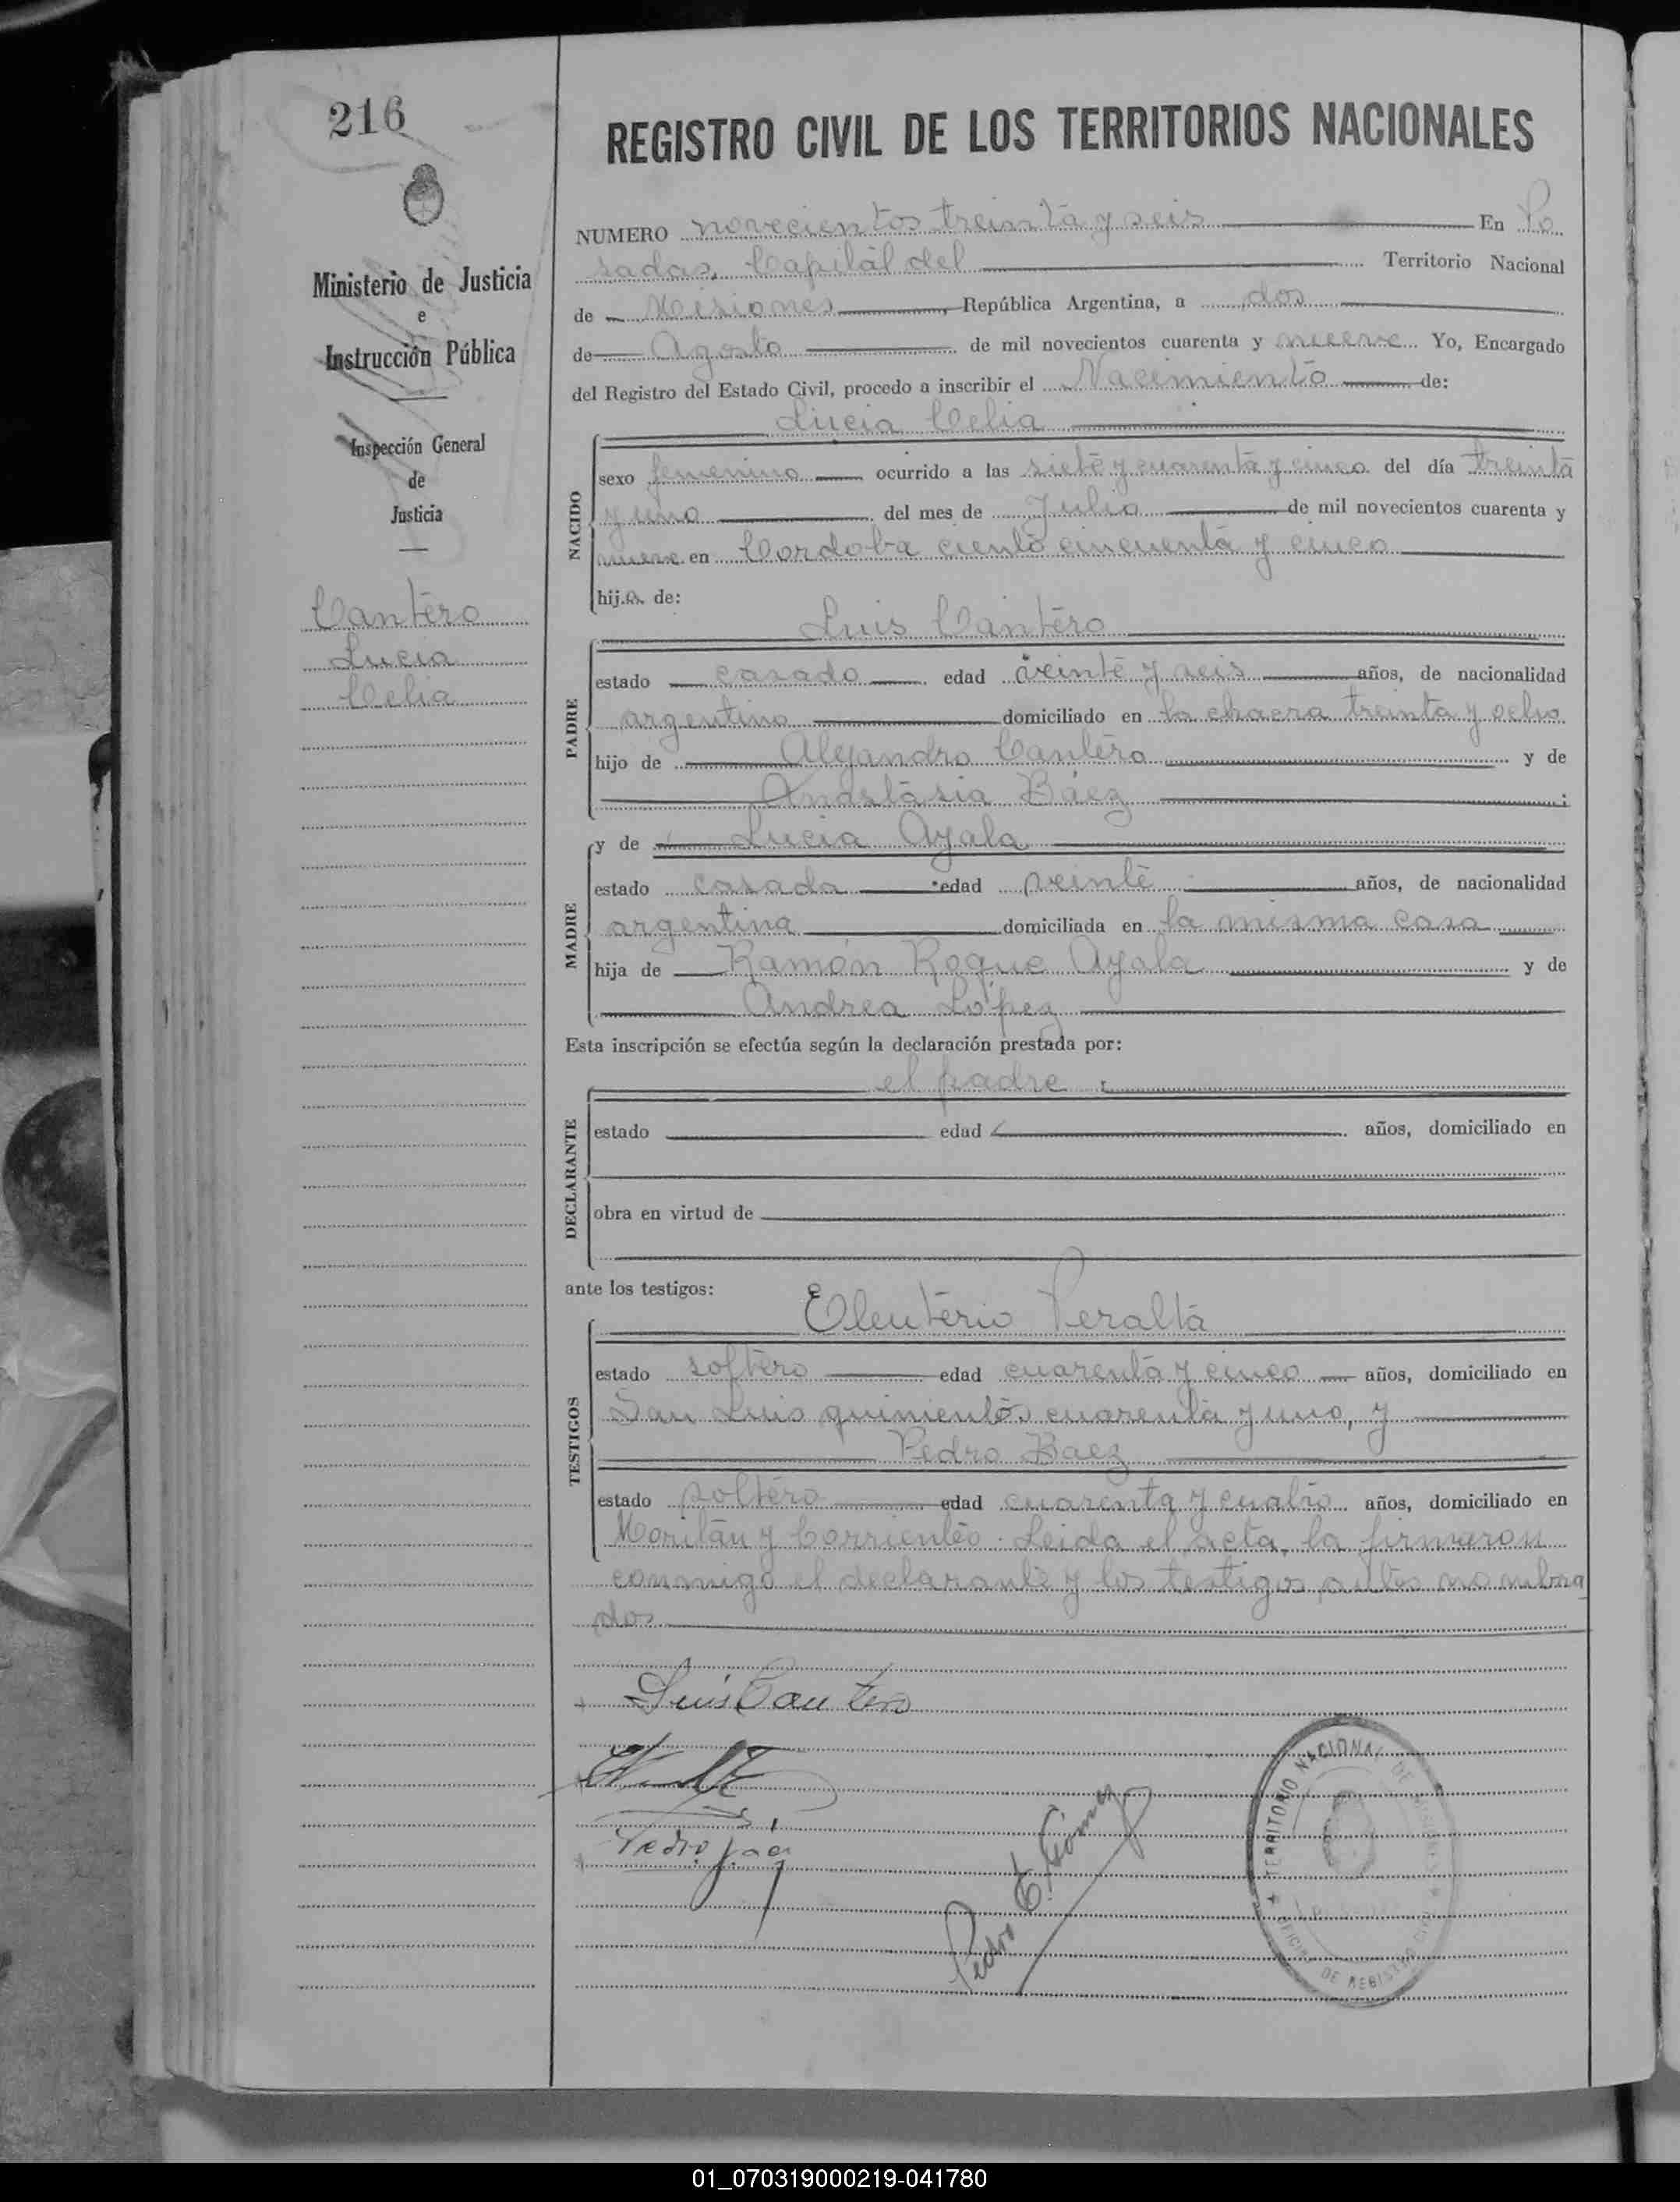 216
REGISTRO CIVIL DE LOS TERRITORIOS NACIONALES
Ministerio de Justicia
e
Instrucción Pública
Inspección General
de
Justicia
Cantero
Lucia
Celia
NUMERO novecientos treinta y seis En Po
sadas, Capital del Territorio Nacional
de Misiones, República Argentina, a dos
de Agosto de mil novecientos cuarenta y nueve Yo, Encargado
del Registro del Estado Civil, procedo a inscribir el Nacimiento de:
Lucia Celia
NACIDO
sexo femenino ocurrido a las siete y cuarenta y cinco del día treinta
y uno del mes de Julio de mil novecientos cuarenta y
nueve en Cordoba ciento cincuenta y cinco
hija de:
Luis Cantero
PADRE
estado casado edad veinte y seis años, de nacionalidad
argentino domiciliado en la chacra treinta y ocho
hijo de Alejandro Cantero y de
Anastasia Báez;
y de Lucia Ayala
MADRE
estado casada edad veinte años, de nacionalidad
argentina domiciliada en la misma casa
hija de Ramón Roque Ayala y de
Andrea López
Esta inscripción se efectúa según la declaración prestada por:
el padre
DECLARANTE
estado edad años, domiciliado en
obra en virtud de
ante los testigos:
Eleuterio Peralta
TESTIGOS
estado soltero edad cuarenta y cinco años, domiciliado en
San Luis quinientos cuarenta y uno, y
Pedro Baez
estado soltero edad cuarenta y cuatro años, domiciliado en
y Corrientes. Leida el acta, la firmaron
conmigo el declarante y los testigos antes nombra
dos.
Luis Cantero
Pedro Báez
Pedro E. Gómez
TERRITORIO NACIONAL DE MISIONES
OFICINA DE REGISTRO CIVIL
01_070319000219-041780